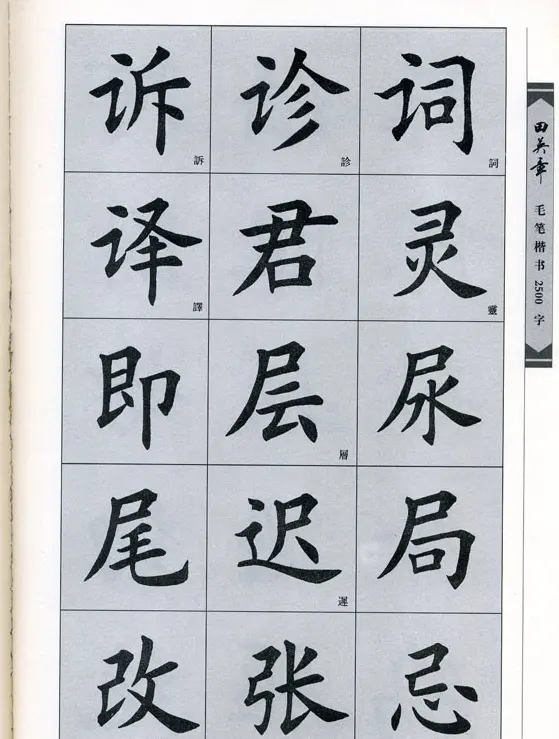 诉 訴 诊 診 词 詞
译 譯 君 灵 靈
即 层 層 尿
尾 迟 遲 局
改 张 忌
田英章 毛笔楷书2500字